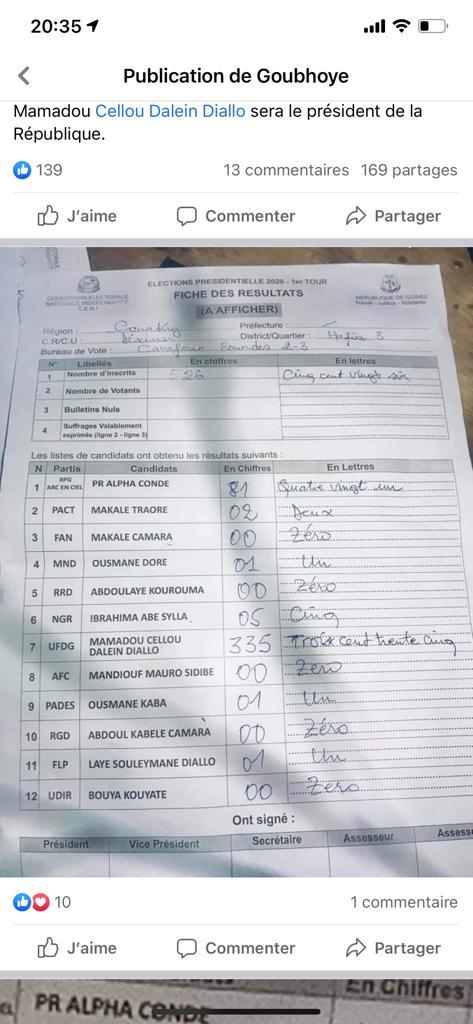 20:35
Publication de Goubhoye
Mamadou Cellou Dalein Diallo sera le président de la
République.
139
13 commentaires 169 partages
J'aime Commenter Partager
ELECTIONS PRESIDENTIELLE 2020 - 1er TOUR
COMMISSION ELECTORALE
NATIONALE INDEPENDANTE
C.E.N.I
FICHE DES RESULTATS
REPUBLIQUE DE GUINEE
Travail - Justice - Solidarité
(A AFFICHER)
Région : Conakry Préfecture :
C.R/C.U : District/Quartier : 3
Bureau de Vote : Carrefour 2-3
N° Libellés En chiffres En lettres
1 Nombre d'inscrits 526 Cinq cent vingt six
2 Nombre de Votants
3 Bulletins Nuls
4 Suffrages Valablement
exprimés (ligne 2 - ligne 3)
Les listes de candidats ont obtenu les résultats suivants :
N Partis Candidats En Chiffres En Lettres
1 RPG ARC EN CIEL PR ALPHA CONDE 81 Quatre vingt un
2 PACT MAKALE TRAORE 02 Deux
3 FAN MAKALE CAMARA 00 Zéro
4 MND OUSMANE DORE 01 Un
5 RRD ABDOULAYE KOUROUMA 00 Zéro
6 NGR IBRAHIMA ABE SYLLA 05 Cinq
7 UFDG MAMADOU CELLOU DALEIN DIALLO 335 Troix cent trente cinq
8 AFC MANDIOUF MAURO SIDIBE 00 Zero
9 PADES OUSMANE KABA 01 Un
10 RGD ABDOUL KABELE CAMARA 00 Zéro
11 FLP LAYE SOULEYMANE DIALLO 01 Un
12 UDIR BOUYA KOUYATE 00 Zero
Ont signé :
Président Vice Président Secrétaire Assesseur Assess
10
1 commentaire
J'aime Commenter Partager
En Chiffres
PR ALPHA CONDE